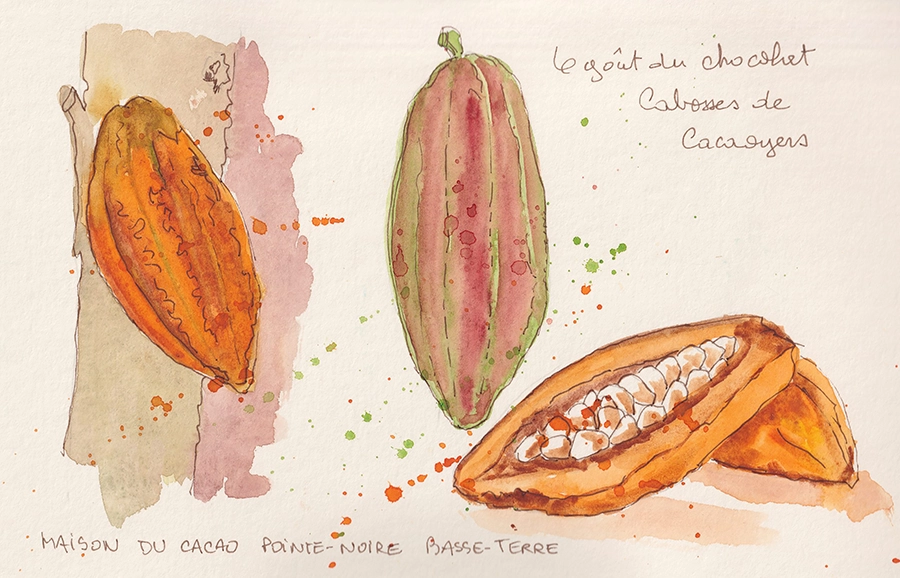 Le goût du chocolat
Cabosses de
Cacaoyers
MAISON DU CACAO POINTE-NOIRE BASSE-TERRE